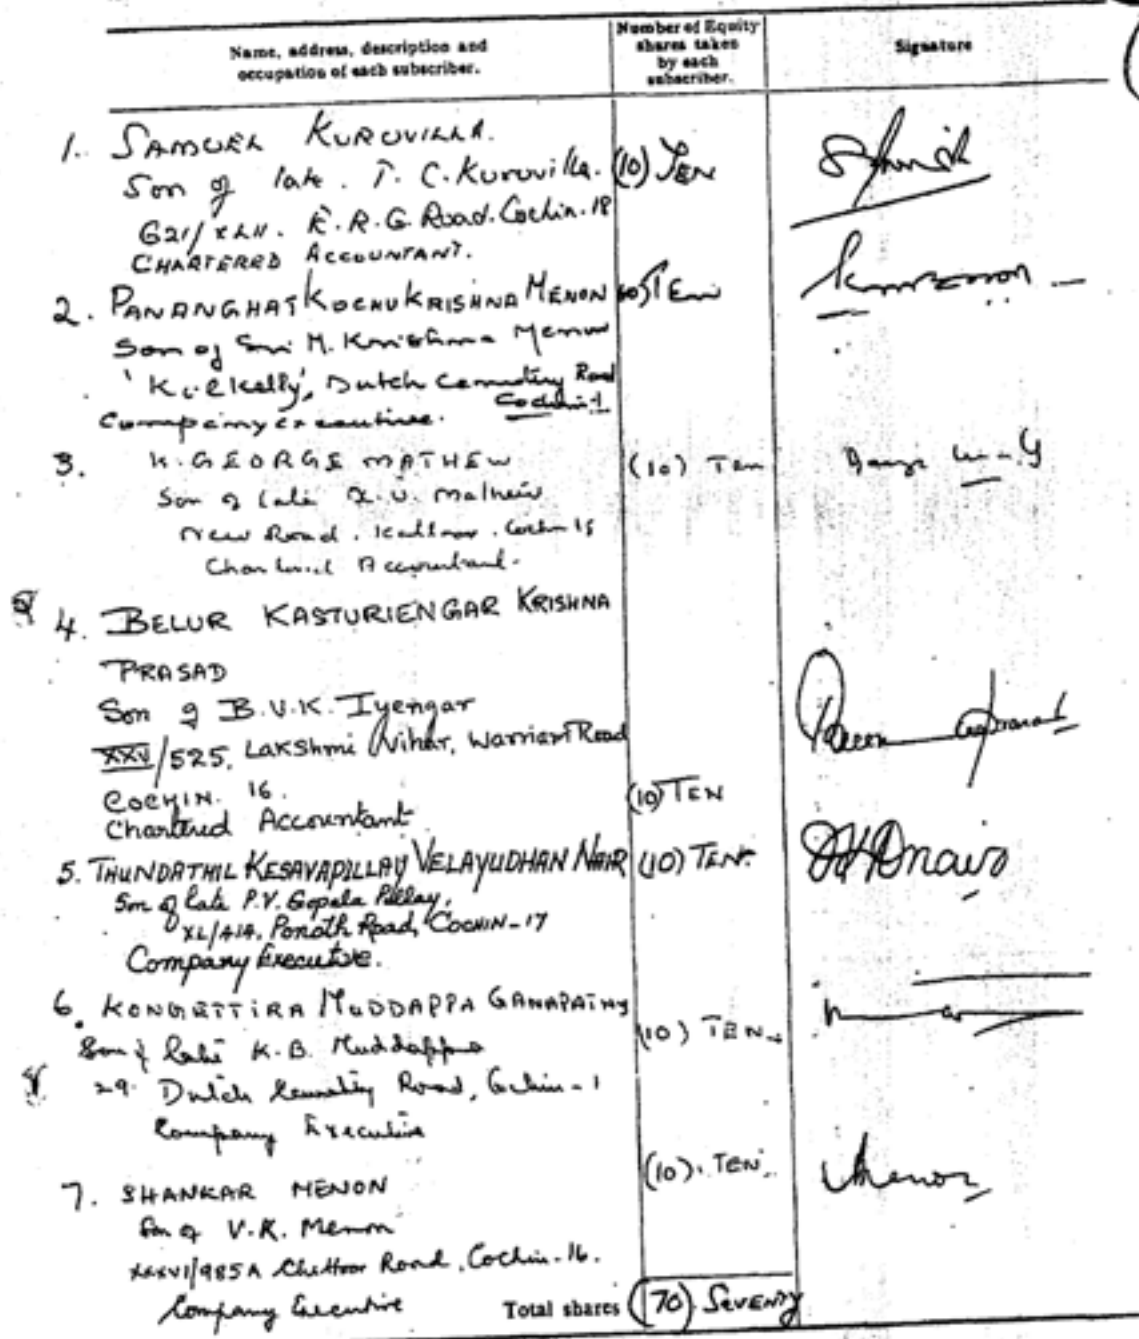 Name, address, description and
occupation of each subscriber.
Number of Equity
shares taken
by each
subscriber.
Signature
1. SAMUEL KURUVILLA.
Son of late. T. C. Kuruvilla. (10) TEN
621/XLII. K. R. G. Road. Cochin. 18
CHARTERED ACCOUNTANT.
2. PANANGHAT KOCHU KRISHNA MENON (10) TEN
Son of Sri M. Krishna Menon
Dutch Cemetery Road
Cochin-1
Company executive.
3. K. GEORGE MATHEW (10) Ten
Son of late Mathew
New Road. Cochin 18
Chartered Accountant.
4. BELUR KASTURIENGAR KRISHNA
PRASAD
Son of B.V.K. Iyengar
XXV/525, Lakshmi Vihar, Warriam Road
COCHIN. 16. (10) TEN
Chartered Accountant
5. THUNDATHIL KESAVAPILLAY VELAYUDHAN NAIR (10) TEN.
Son of late P.V. Gopala Pillay,
XL/414, Ponoth Road, COCHIN-17
Company Executive.
6. KONGETTIRA MUDDAPPA GANAPATHY (10) TEN.
Son of late K.B. Muddappa
29. Dutch Cemetery Road, Cochin-1
Company Executive
7. SHANKAR MENON (10). TEN.
Son of V.K. Menon
XXXVI/985A Chittoor Road, Cochin-16.
Company Executive
Total shares (70) SEVENTY